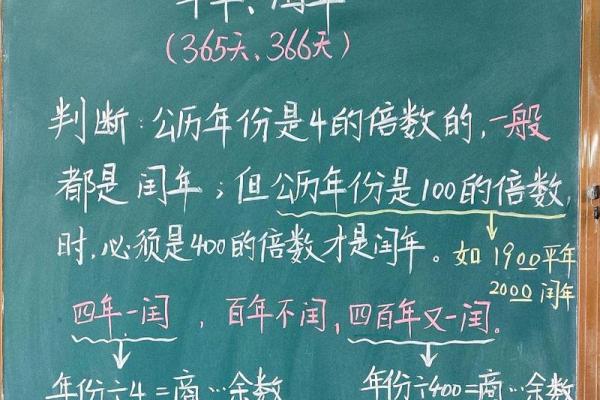 平年、闰年
(365天、366天)
判断:公历年份是4的倍数的,一般
都是闰年;但公历年份是100的倍数,
时,必须是400的倍数才是闰年。如 1900平年
2000闰年
四年一闰,百年不闰,四百年又一闰。
年份÷4=商…余数 年份÷400=商…余数